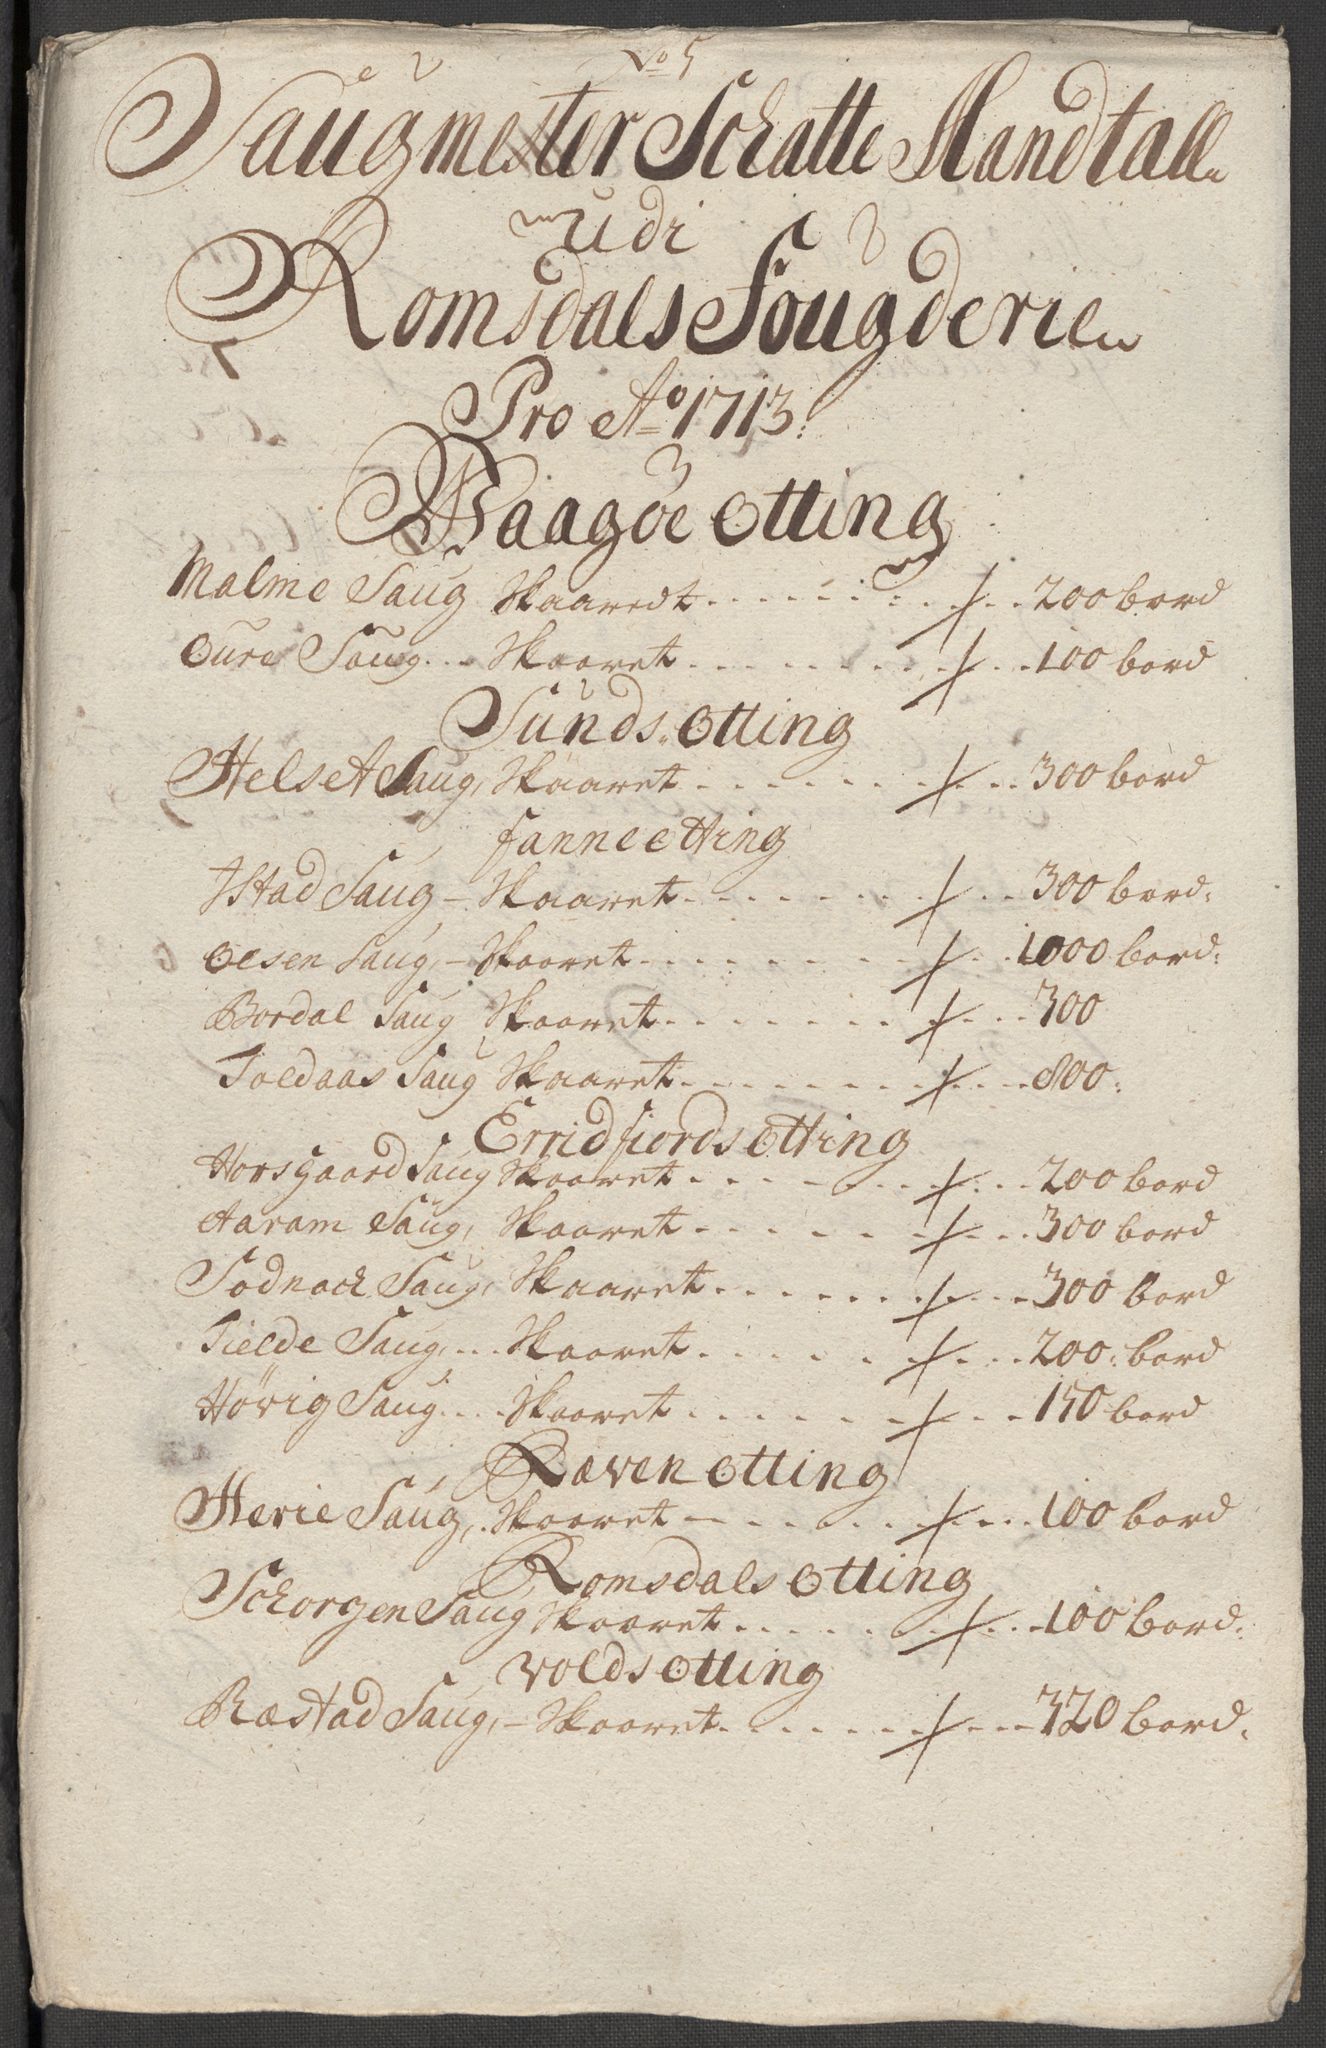 No 5
Saugmester Schatte Mandtall
udi
Romsdals Fougderie
Pro Ao 1713:
Baagöe Otting
Malme Saug Skaaredt 200 bord
Oure Saug Skaaret 100 bord
Sunds Otting
Helset Saug, Skaaret 300 bord
Fanne Otting
Istad Saug – Skaaret 300 bord:
Olsen Saug, – Skaaret 1000 bord:
Bordal Saug Skaaret 300
Toldaas Saug Skaaret 800:
Erridfiords Otting
Horsgaard Saug Skaaret 200 bord
Aaram Saug, Skaaret 300 bord
Sodnack Saug, Skaaret 300 bord
Tielde Saug, Skaaret 200: bord
Hövig Saug Skaaret 150 bord
Ræven Otting
Herie Saug, Skaaret 100 bord
Romsdals Otting
Schorgen Saug Skaaret 100 bord:
Volds Otting
Ræstad Saug, – Skaaret 320 bord: